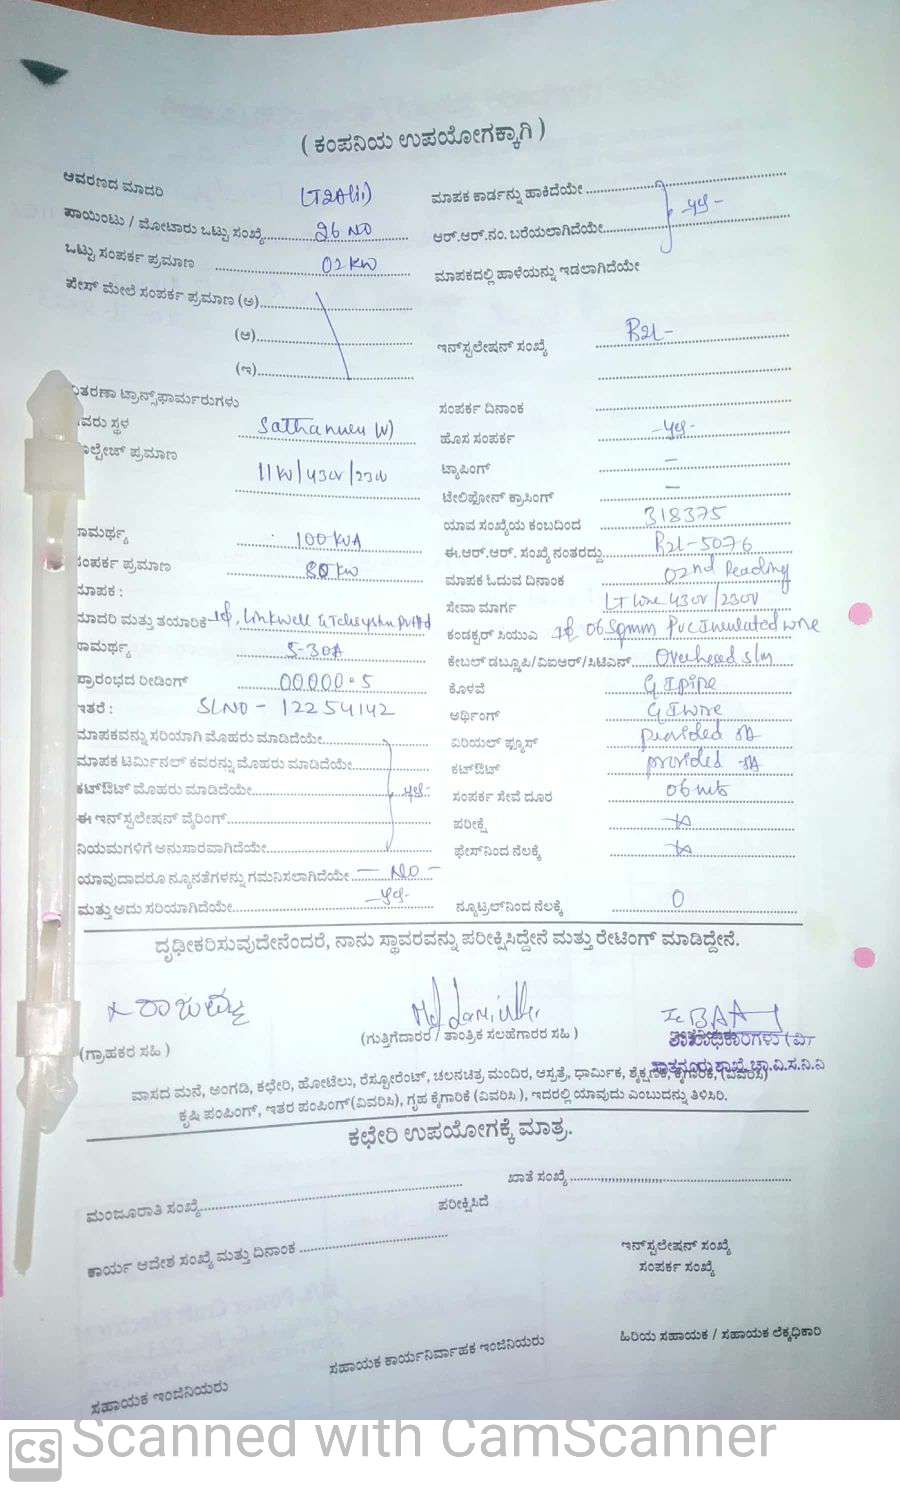 ( ಕಂಪನಿಯ ಉಪಯೋಗಕ್ಕಾಗಿ )
ಆವರಣದ ಮಾದರಿ
ಪಾಯಿಂಟು / ಮೋಟಾರು ಒಟ್ಟು ಸಂಖ್ಯೆ 26 NO
ಒಟ್ಟು ಸಂಪರ್ಕ ಪ್ರಮಾಣ 02 KW
ಪೇಸ್ ಮೇಲೆ ಸಂಪರ್ಕ ಪ್ರಮಾಣ (ಅ)
(ಆ)
(ಇ)
ಮಾಪಕ ಕಾರ್ಡನ್ನು ಹಾಕಿದೆಯೇ
ಆರ್.ಆರ್.ನಂ. ಬರೆಯಲಾಗಿದೆಯೇ yes -
ಮಾಪಕದಲ್ಲಿ ಹಾಳೆಯನ್ನು ಇಡಲಾಗಿದೆಯೇ
ಇನ್‌ಸ್ಟಲೇಷನ್ ಸಂಖ್ಯೆ R2L -
ತರಣಾ ಟ್ರಾನ್ಸ್‌ಫಾರ್ಮರುಗಳು
ವರು ಸ್ಥಳ
ಾಲ್ಟೇಜ್ ಪ್ರಮಾಣ
ಾಮರ್ಥ್ಯ 100 KVA
ಂಪರ್ಕ ಪ್ರಮಾಣ 80 KW
ಮಾಪಕ :
ಮಾದರಿ ಮತ್ತು ತಯಾರಿಕೆ 1ф, Linkwell
ಾಮರ್ಥ್ಯ 5-30A
ಪ್ರಾರಂಭದ ರೀಡಿಂಗ್ 00000.5
ಇತರೆ : SLNO - 12254142
ಮಾಪಕವನ್ನು ಸರಿಯಾಗಿ ಮೊಹರು ಮಾಡಿದೆಯೇ
ಮಾಪಕ ಟರ್ಮಿನಲ್ ಕವರನ್ನು ಮೊಹರು ಮಾಡಿದೆಯೇ
ಕಟ್‌ಔಟ್ ಮೊಹರು ಮಾಡಿದೆಯೇ yes
ಈ ಇನ್‌ಸ್ಟಲೇಷನ್ ವೈರಿಂಗ್
ನಿಯಮಗಳಿಗೆ ಅನುಸಾರವಾಗಿದೆಯೇ
ಯಾವುದಾದರೂ ನ್ಯೂನತೆಗಳನ್ನು ಗಮನಿಸಲಾಗಿದೆಯೇ - NO -
ಮತ್ತು ಅದು ಸರಿಯಾಗಿದೆಯೇ - yes -
ಸಂಪರ್ಕ ದಿನಾಂಕ
ಹೊಸ ಸಂಪರ್ಕ - yes -
ಟ್ಯಾಪಿಂಗ್ -
ಟೇಲಿಫೋನ್ ಕ್ರಾಸಿಂಗ್ -
ಯಾವ ಸಂಖ್ಯೆಯ ಕಂಬದಿಂದ 318375
ಈ.ಆರ್.ಆರ್. ಸಂಖ್ಯೆ ನಂತರದ್ದು R2L-5076
ಮಾಪಕ ಓದುವ ದಿನಾಂಕ 02nd Reading
ಸೇವಾ ಮಾರ್ಗ LT Line 430V/230V
ಕಂಡಕ್ಟರ್ ಸಿಯುಎ 1ф 06 Sqmm Pvc Insulated wire
ಕೇಬಲ್ ಡಬ್ಲೂಪಿ/ವಿಐಆರ್/ಸಿಟಿಎಸ್ Overhead
ಕೊಳವೆ G I pipe
ಅರ್ಥಿಂಗ್ G I wire
ಏರಿಯಲ್ ಫ್ಯೂಸ್ provided
ಕಟ್‌ಔಟ್ provided
ಸಂಪರ್ಕ ಸೇವೆ ದೂರ 06 mts
ಪರೀಕ್ಷೆ
ಫೇಸ್‌ನಿಂದ ನೆಲಕ್ಕೆ
ನ್ಯೂಟ್ರಲ್‌ನಿಂದ ನೆಲಕ್ಕೆ 0
ದೃಢೀಕರಿಸುವುದೇನೆಂದರೆ, ನಾನು ಸ್ಥಾವರವನ್ನು ಪರೀಕ್ಷಿಸಿದ್ದೇನೆ ಮತ್ತು ರೇಟಿಂಗ್ ಮಾಡಿದ್ದೇನೆ.
(ಗ್ರಾಹಕರ ಸಹಿ )
(ಗುತ್ತಿಗೆದಾರರ / ತಾಂತ್ರಿಕ ಸಲಹೆಗಾರರ ಸಹಿ )
ವಾಸದ ಮನೆ, ಅಂಗಡಿ, ಕಛೇರಿ, ಹೋಟೆಲು, ರೆಸ್ಟೋರೆಂಟ್, ಚಲನಚಿತ್ರ ಮಂದಿರ, ಆಸ್ಪತ್ರೆ, ಧಾರ್ಮಿಕ, ಶೈಕ್ಷಣಿಕ, ಕೈಗಾರಿಕೆ, (ವಿವರಿಸಿ)
ಕೃಷಿ ಪಂಪಿಂಗ್, ಇತರ ಪಂಪಿಂಗ್(ವಿವರಿಸಿ), ಗೃಹ ಕೈಗಾರಿಕೆ (ವಿವರಿಸಿ ), ಇದರಲ್ಲಿ ಯಾವುದು ಎಂಬುದನ್ನು ತಿಳಿಸಿರಿ.
ಕಛೇರಿ ಉಪಯೋಗಕ್ಕೆ ಮಾತ್ರ.
ಮಂಜೂರಾತಿ ಸಂಖ್ಯೆ
ಖಾತೆ ಸಂಖ್ಯೆ
ಪರೀಕ್ಷಿಸಿದೆ
ಕಾರ್ಯ ಆದೇಶ ಸಂಖ್ಯೆ ಮತ್ತು ದಿನಾಂಕ
ಇನ್‌ಸ್ಟಲೇಷನ್ ಸಂಖ್ಯೆ
ಸಂಪರ್ಕ ಸಂಖ್ಯೆ
ಸಹಾಯಕ ಇಂಜಿನಿಯರು
ಸಹಾಯಕ ಕಾರ್ಯನಿರ್ವಾಹಕ ಇಂಜಿನಿಯರು
ಹಿರಿಯ ಸಹಾಯಕ / ಸಹಾಯಕ ಲೆಕ್ಕಧಿಕಾರಿ
CS Scanned with CamScanner